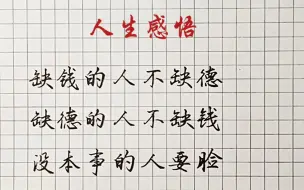 人生感悟
缺钱的人不缺德
缺德的人不缺钱
没本事的人要脸